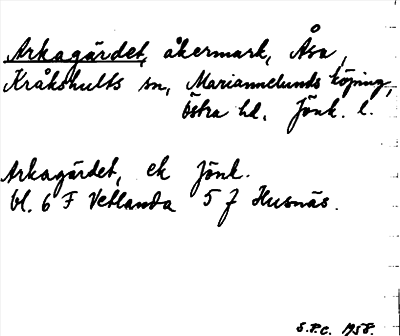 Arkagärdet, åkermark, Åsa,
Kråkshults sn, Mariannelunds köping,
Östra hd. Jönk. l.
Arkagärdet, ek Jönk.
bl. 6 F Vetlanda 5 f Husnäs.
S.P.C. 1958.